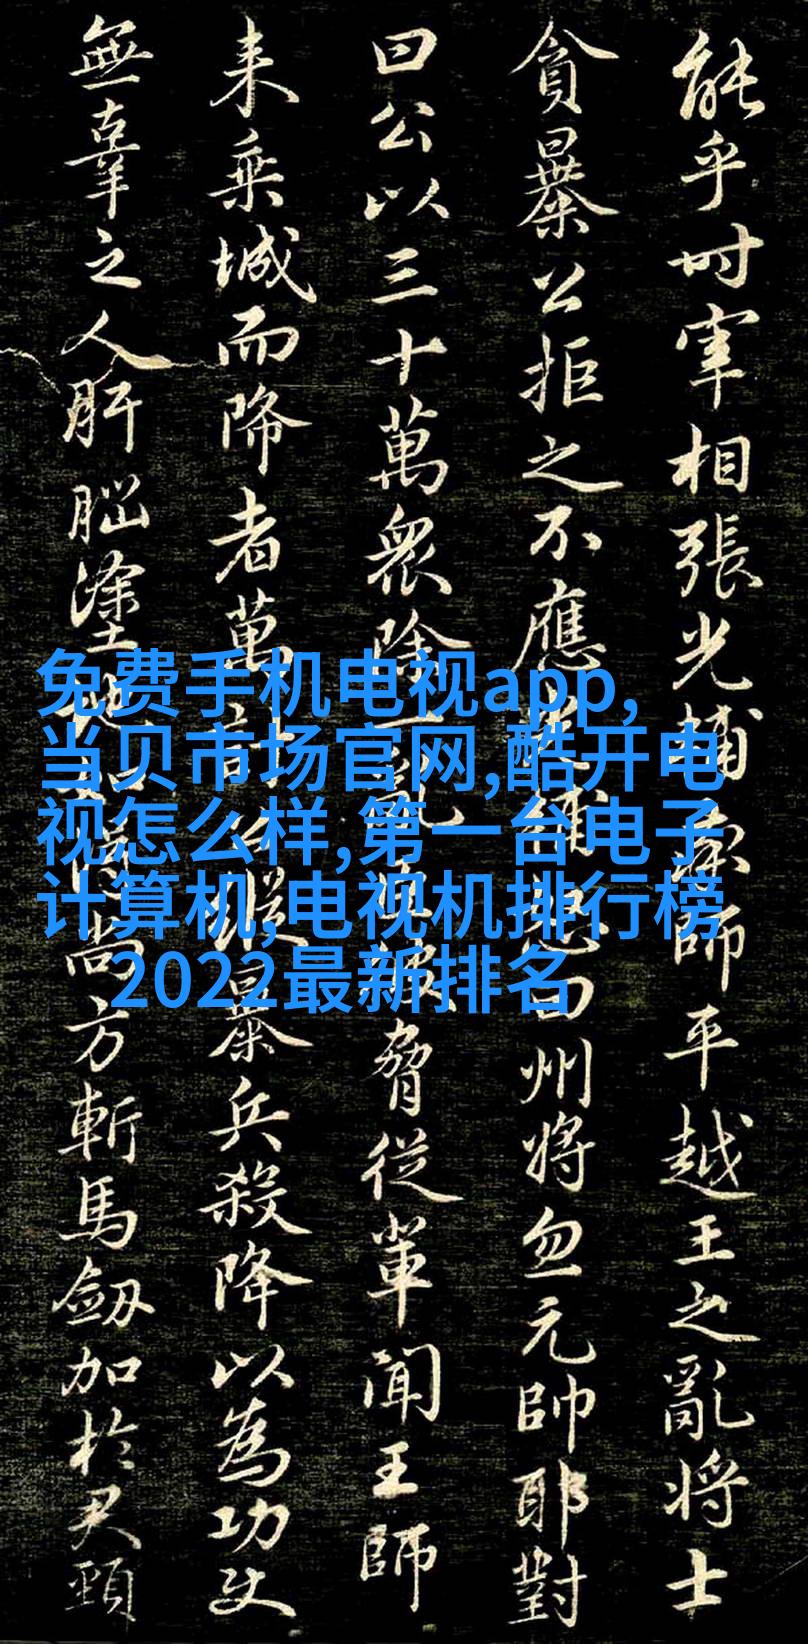 能乎时宰相張光輔率師平越王之亂将士
貪暴公拒之不應怒曰州将忽元帥耶對
曰公以三十萬衆除一亂脅從軰聞王師
来乘城而降者萬計公縱暴兵殺降以為功
無辜之人肝脳塗地如得尚方斬馬劔加於君頸
免费手机电视app,
当贝市场官网,酷开电
视怎么样,第一台电子
计算机,电视机排行榜
2022最新排名